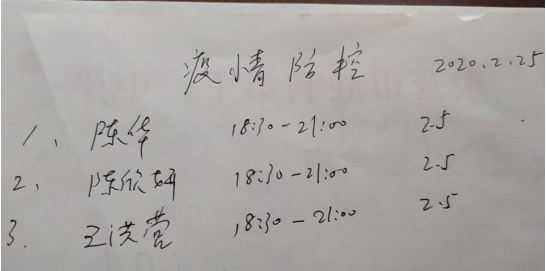 疫情防控 2020.2.25
1、 陈华 18:30-21:00 2.5
2、 陈欣妍 18:30-21:00 2.5
3. 王洪营 18:30-21:00 2.5